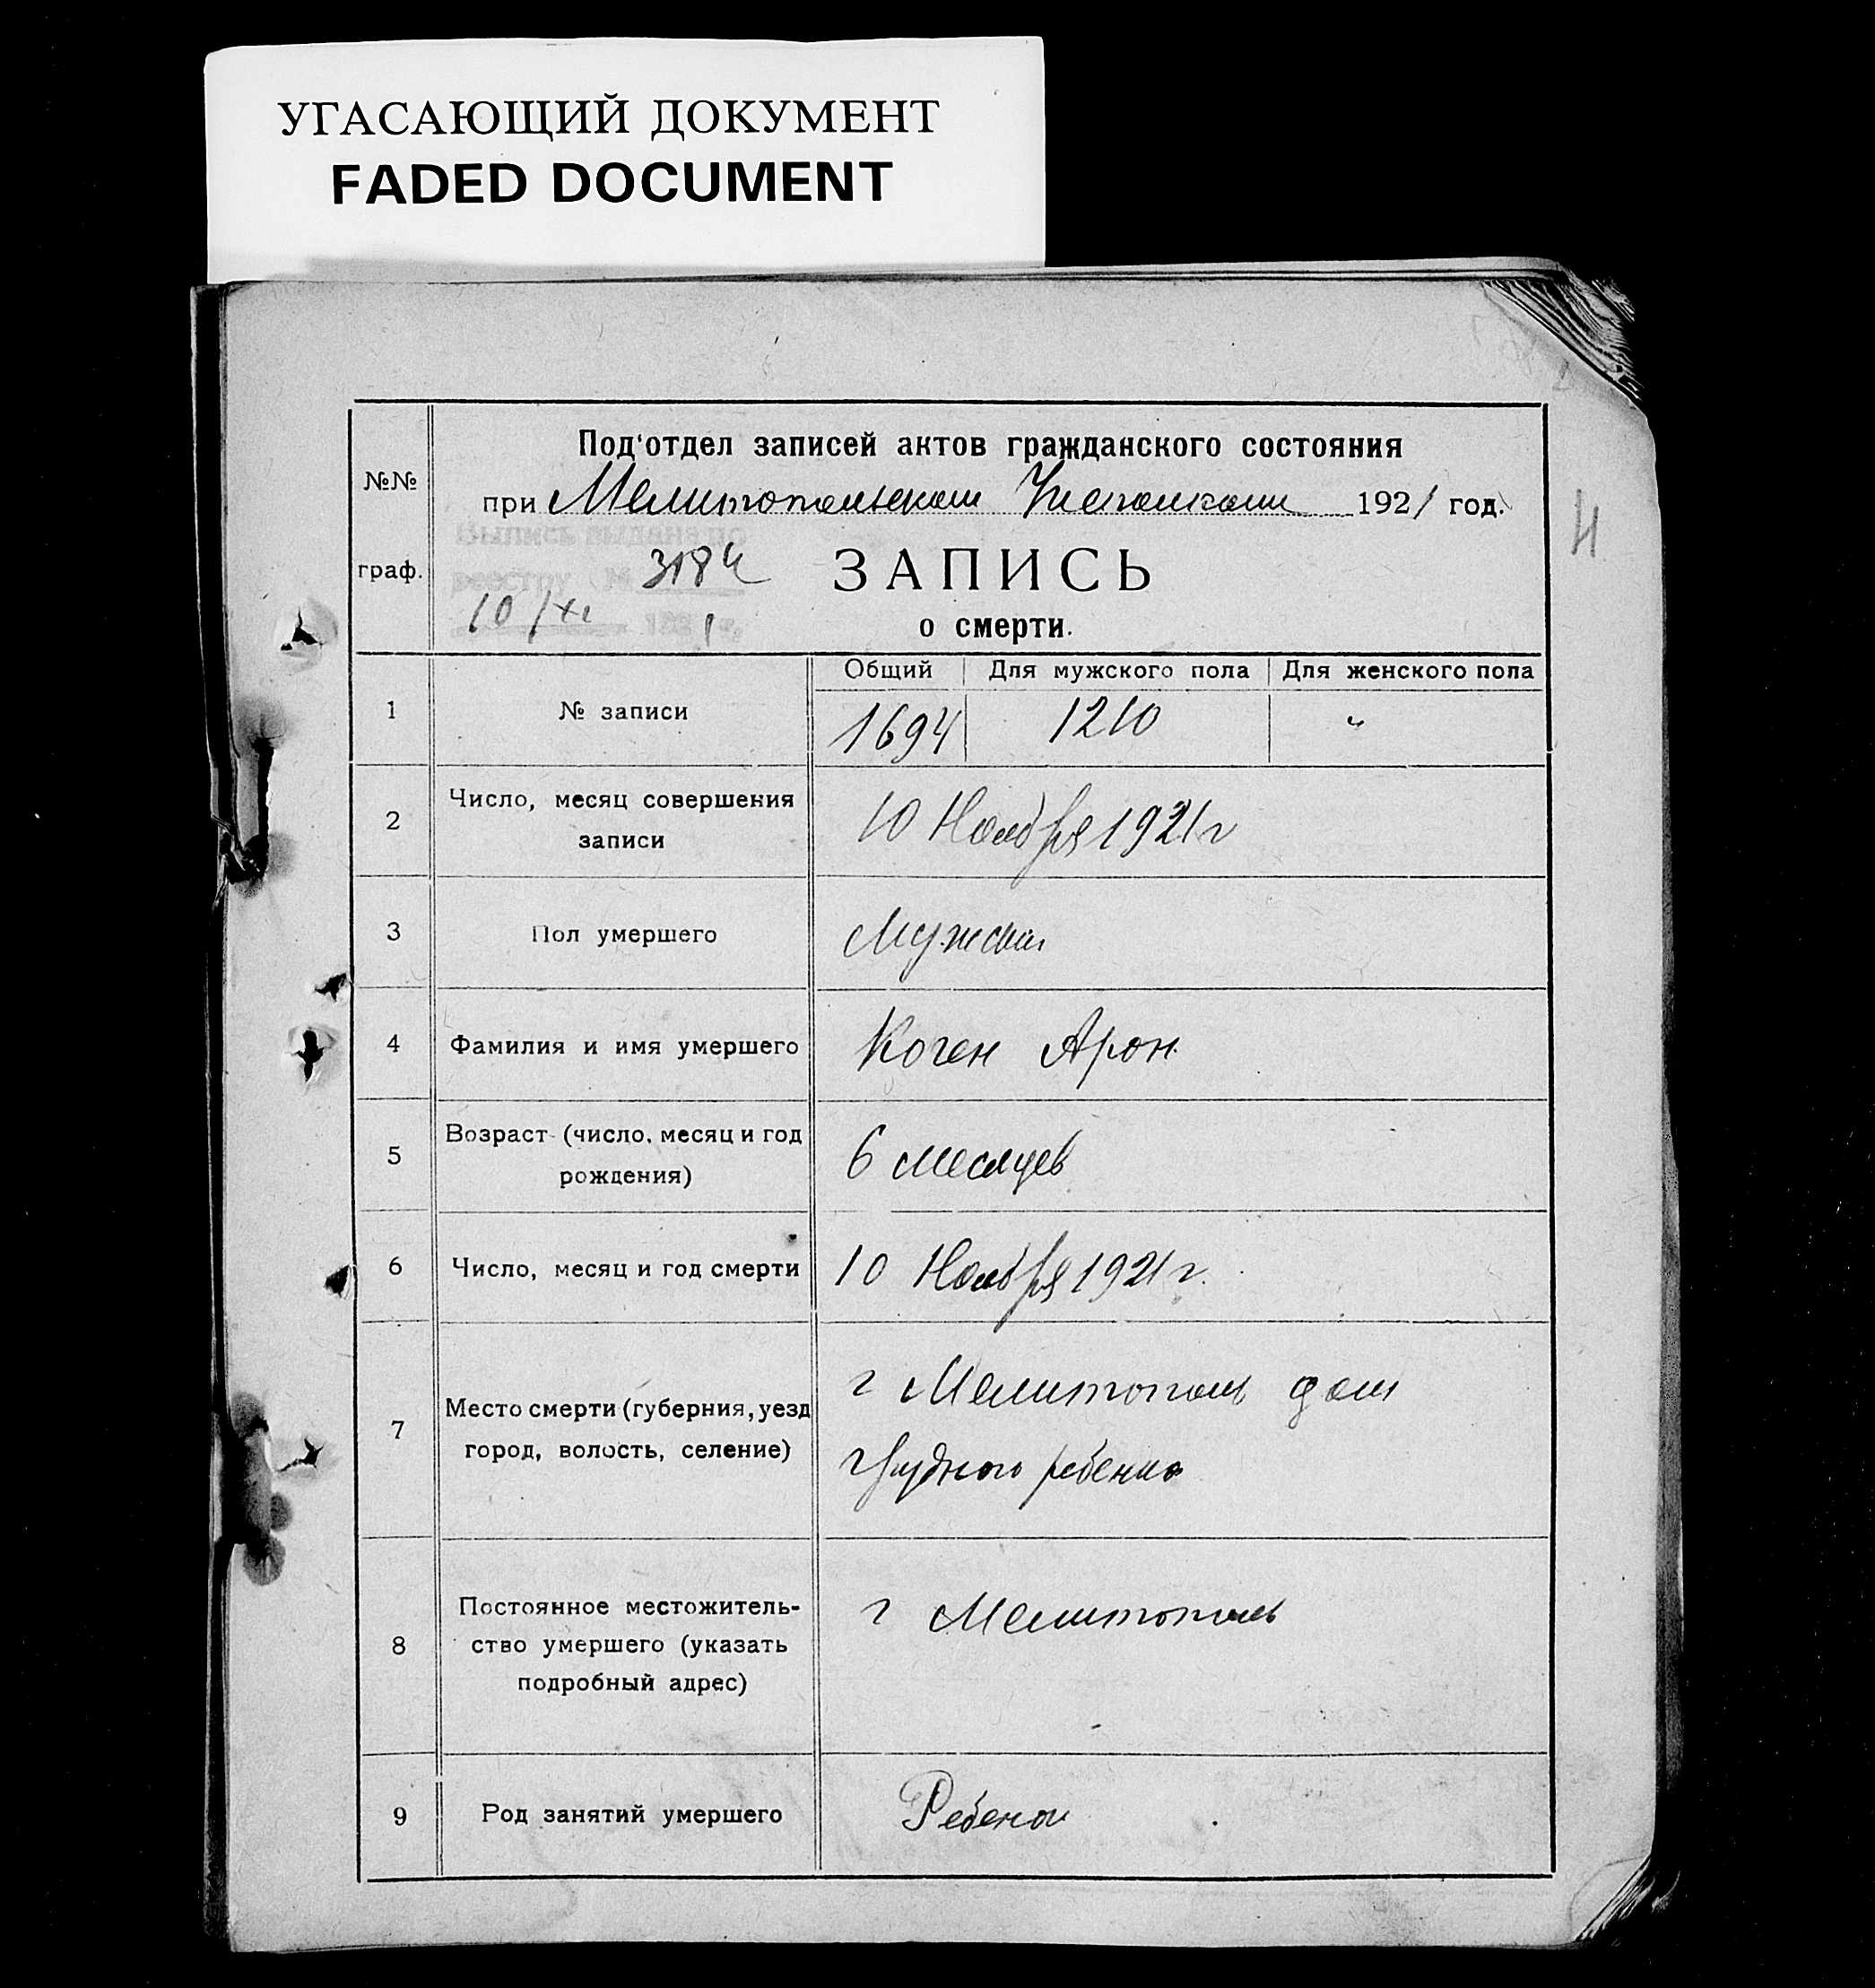 УГАСАЮЩИЙ ДОКУМЕНТ
FADED DOCUMENT
№№
граф.
Под'отдел записей актов гражданского состояния
при Мелитопольском 1921 год.
Выпись выдана по
реестру № 3184
10/XI 1921 г.
ЗАПИСЬ
о смерти.
1 № записи
Общий Для мужского пола Для женского пола
1694 1210 "
2 Число, месяц совершения
записи
10 Ноября 1921 г
3 Пол умершего
Мужской
4 Фамилия и имя умершего
Коген Арон
5 Возраст (число, месяц и год
рождения)
6 месяцев
6 Число, месяц и год смерти
10 Ноября 1921 г.
7 Место смерти (губерния, уезд
город, волость, селение)
г Мелитополь дом
грудного ребенка
8 Постоянное местожитель-
ство умершего (указать
подробный адрес)
г Мелитополь
9 Род занятий умершего
Ребенок